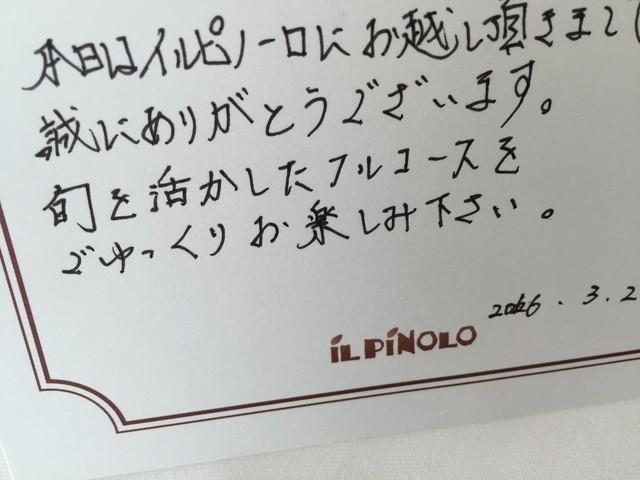 本日はイルピノーロにお越し頂きまし
誠にありがとうございます。
旬を活かしたフルコースを
ごゆっくりお楽しみ下さい。
2016.3.2
iL PiNOLO